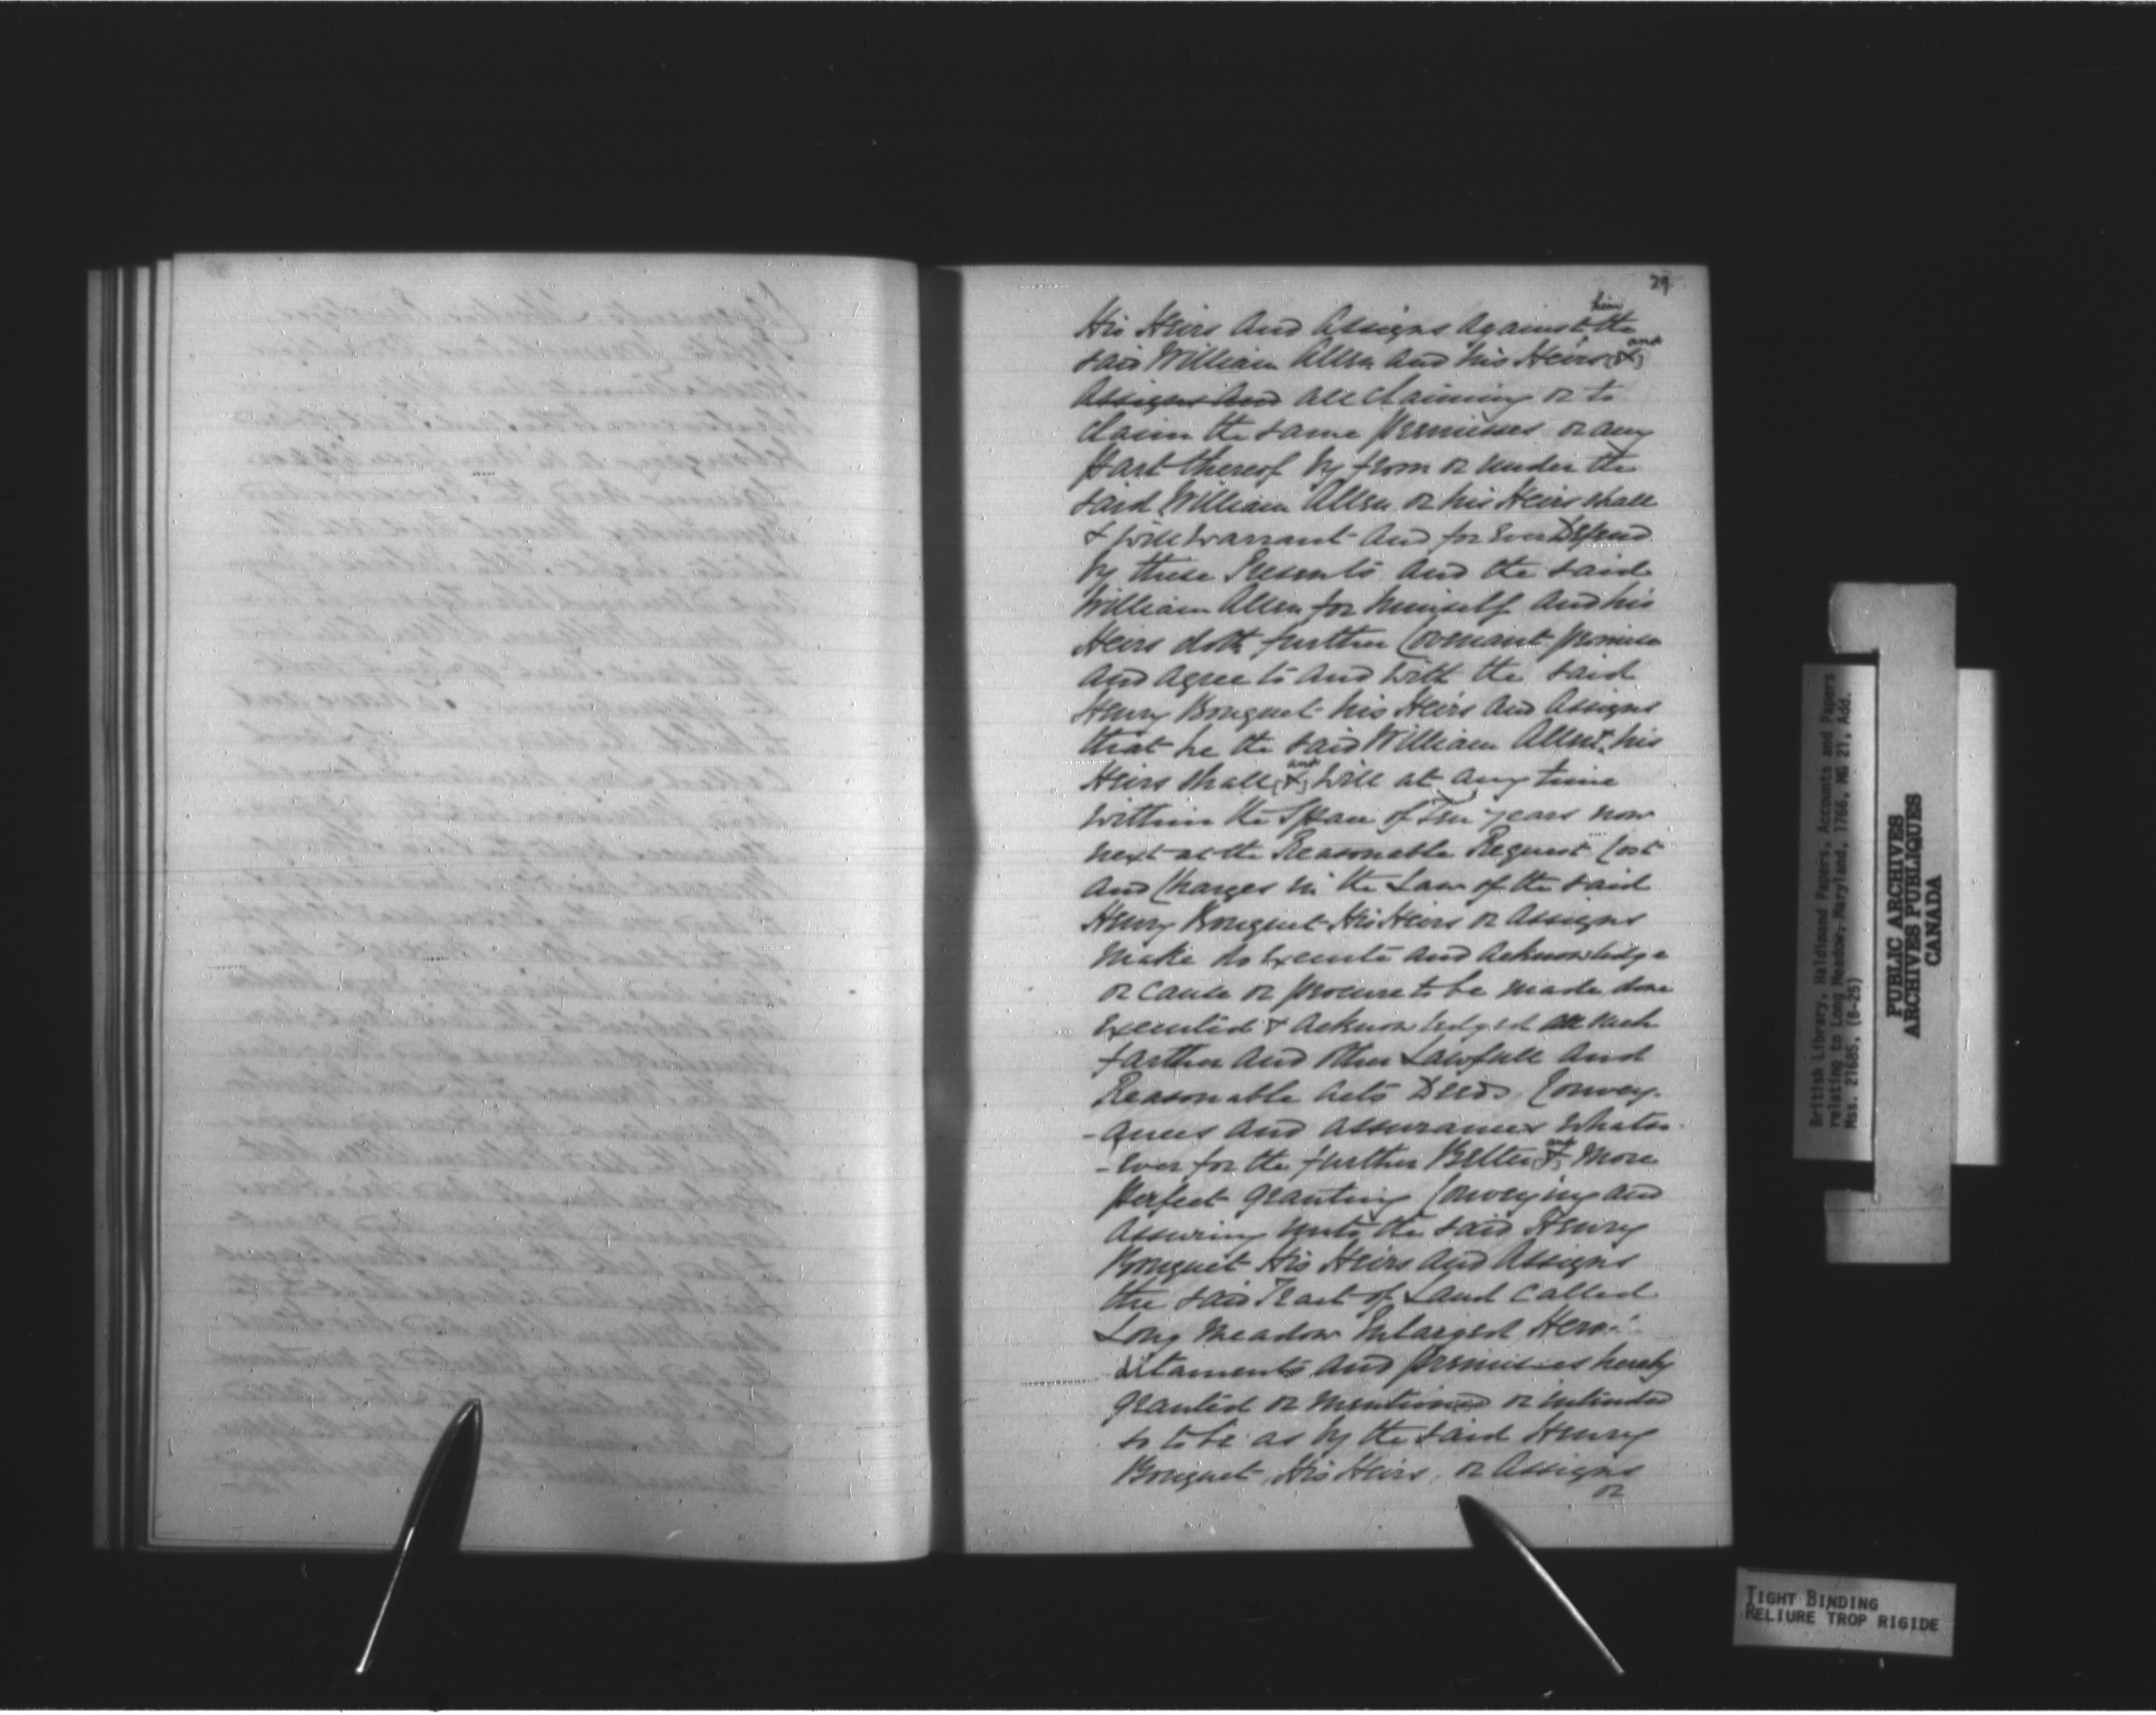 29
His Heirs and Assigns against him the
said William Allen and his Heirs (&) and
Assigns and all claiming or to
claim the same Premisses or any
part thereof by from or under the
said William Allen or his Heirs shall
& will warrant and for Ever Defend
by these Presents and the said
William Allen for himself and his
Heirs doth further Covenant promise
and agree to and with the said
Henry Bouquet his Heirs and Assigns
that he the said William Allen & his
Heirs shall (&) and will at any time
within the Space of Ten years now
next at the Reasonable Request Cost
and Charges in the Law of the said
Henry Bouquet His Heirs or Assigns
make do Execute and Acknowledge
or cause or procure to be made done
Executed & Acknowledged all such
farther and other Lawfull and
Reasonable Acts Deeds Convey-
-ances and assurances whatso-
-ever for the further Better (&) and more
perfect granting Conveying and
assuring unto the said Henry
Bouquet His Heirs and Assigns
the said Tract of Land called
Long Meadow Enlarged Here-
-ditaments and premisses hereby
granted or mentioned or intended
so to be as by the said Henry
Bouquet His Heirs or Assigns
or
British Library, Haldimand Papers, Accounts and Papers
relating to Long Meadow, Maryland, 1766, MG 21, Add.
Mss. 21685, (B-25)
PUBLIC ARCHIVES
ARCHIVES PUBLIQUES
CANADA
TIGHT BINDING
RELIURE TROP RIGIDE